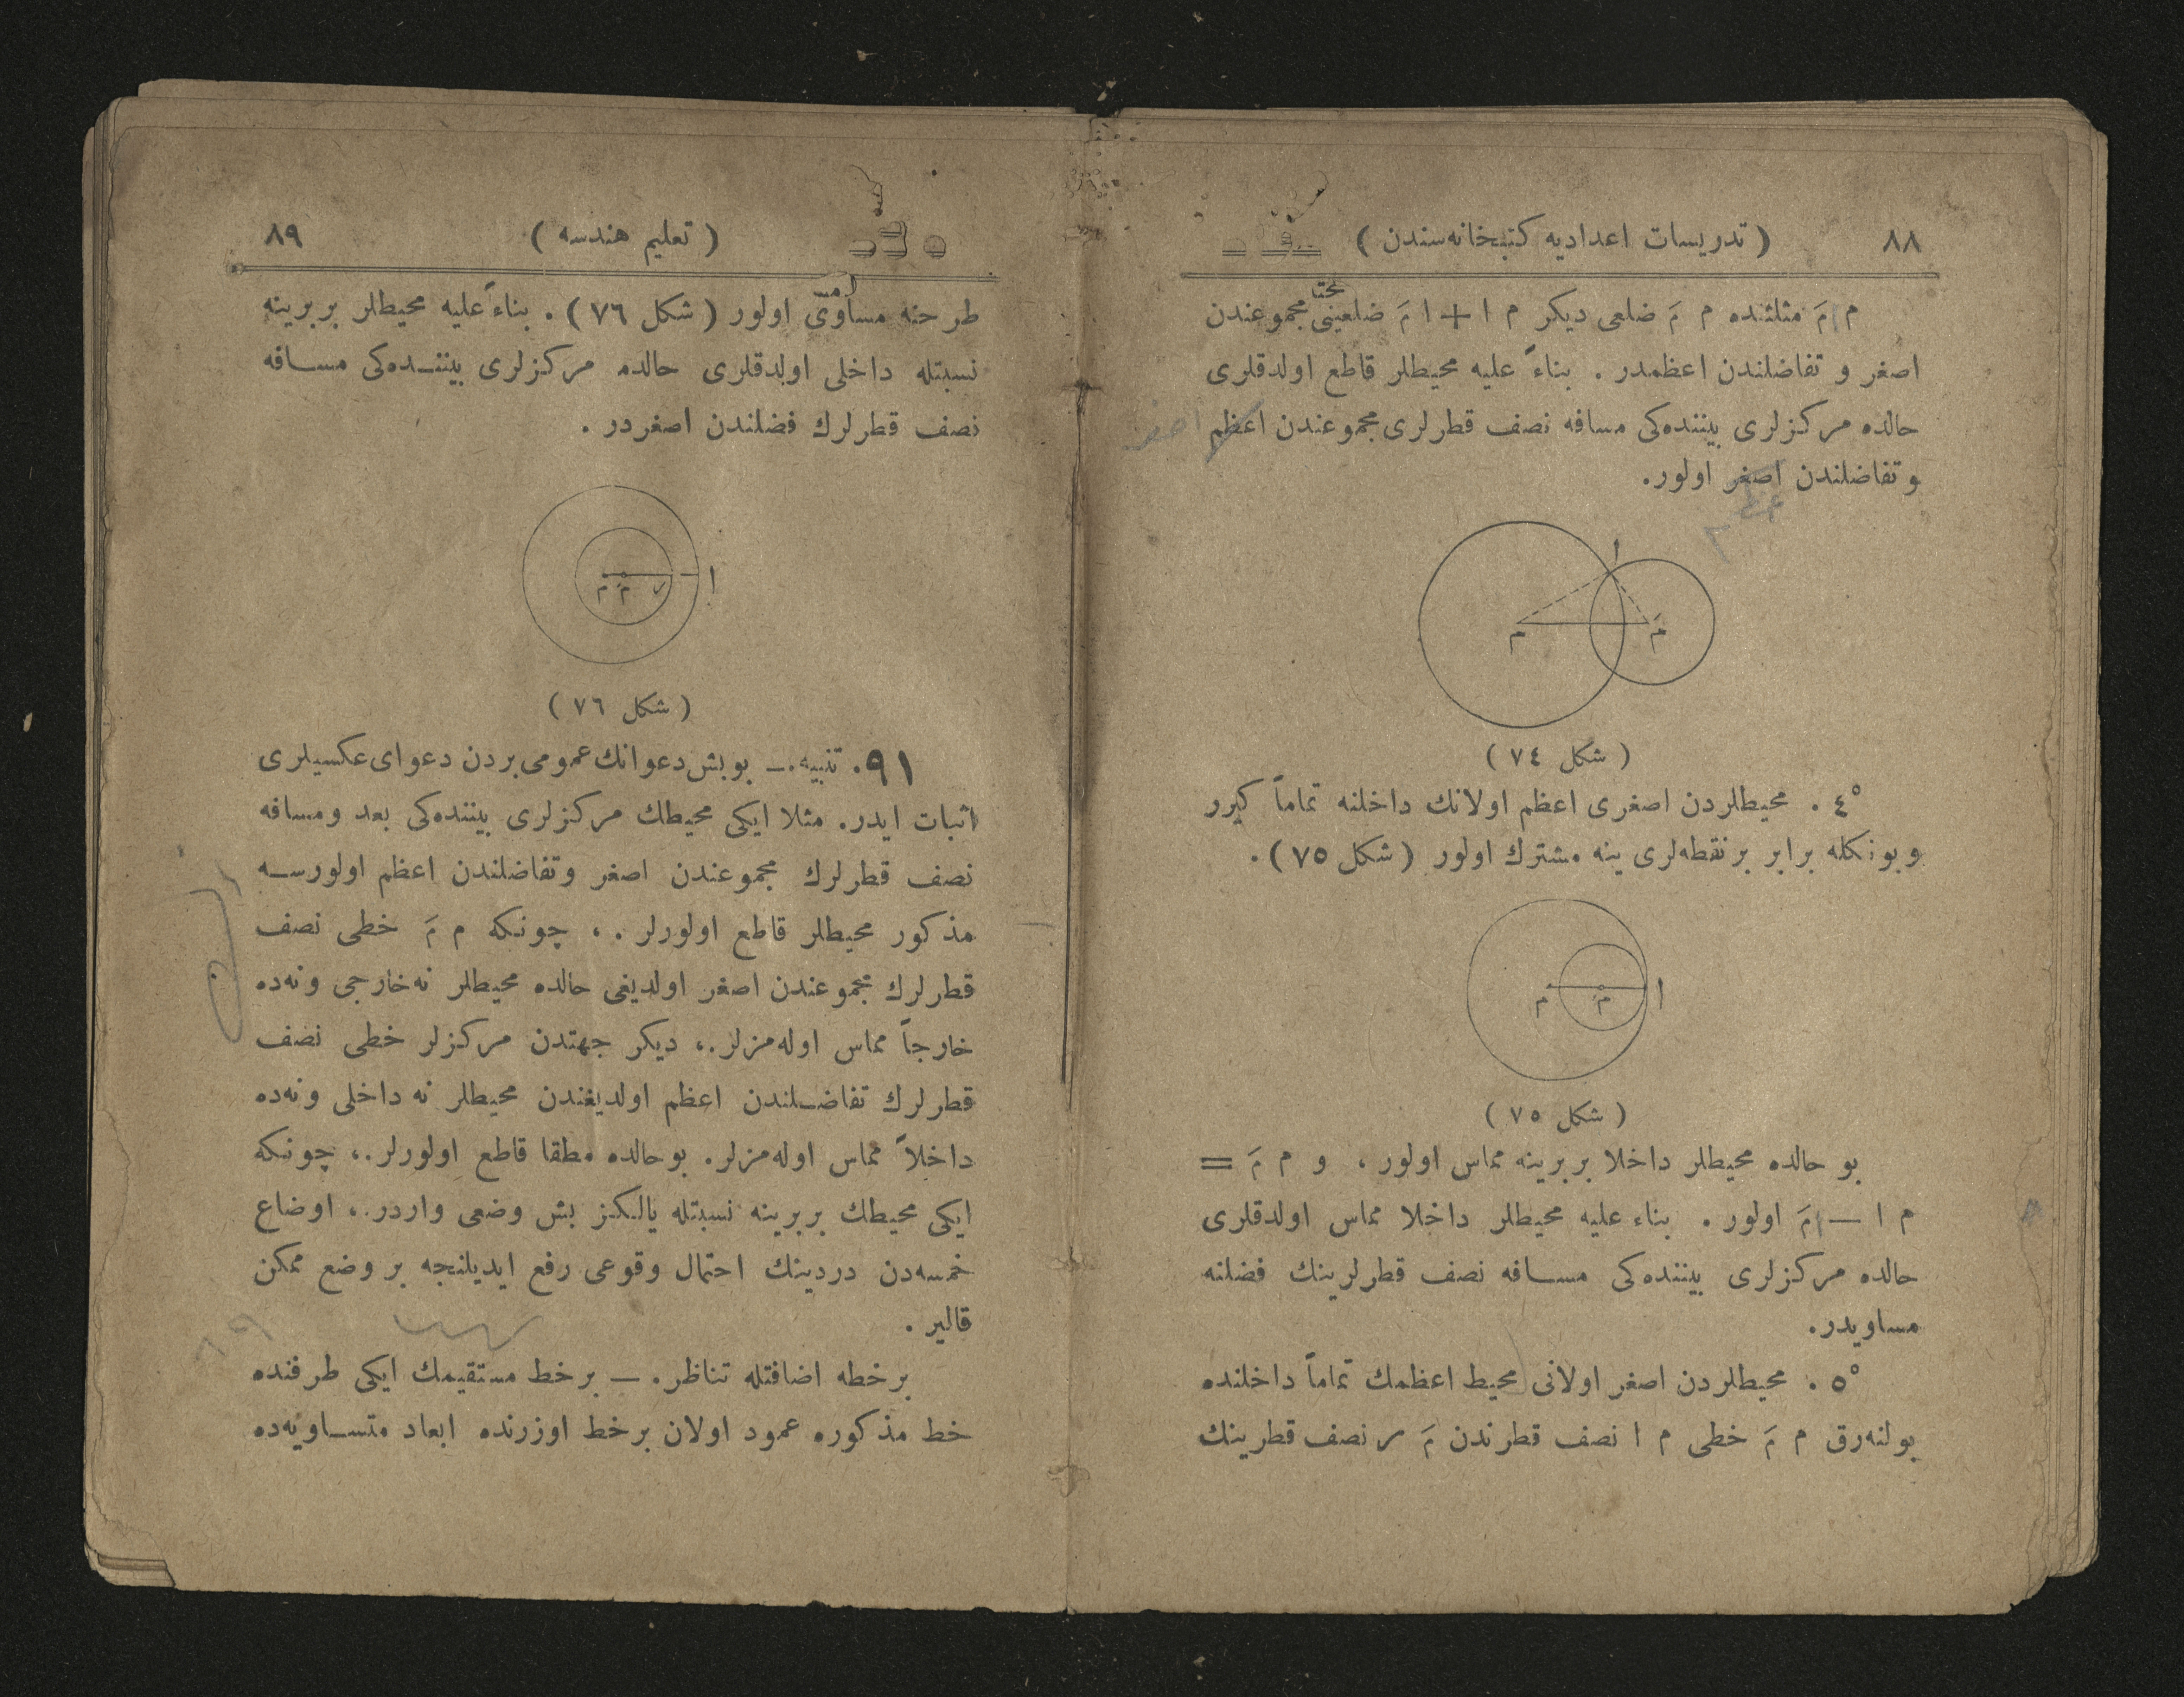 ٨٨ ( تدريسات اعداديه كتبخانه‌سندن )
م ا مَ مثلثنده م مَ ضلعى ديكر م ا + ا مَ ضلعينى مجموعندن
اصغر و تفاضلندن اعظمدر . بناءً عليه محيطلر قاطع اولدقلرى
حالده مركزلرى بيننده‌كى مسافه نصف قطرلرى مجموعندن اعظم اصغر
وتفاضلندن اصغر اولور.
ا
م مَ
( شكل ٧٤ )
٤° . محيطلردن اصغرى اعظم اولانك داخلنه تماماً كيرر
وبونكله برابر برنقطه‌لرى ينه مشترك اولور ( شكل ٧٥ ) .
م مَ ا
( شكل ٧٥ )
بو حالده محيطلر داخلا بربرينه مماس اولور ، و م مَ =
م ا — ا مَ اولور . بناء عليه محيطلر داخلا مماس اولدقلرى
حالده مركزلرى بيننده‌كى مسافه نصف قطرلرينك فضلنه
مساويدر.
٥° . محيطلردن اصغر اولانى محيط اعظمك تماماً داخلنده
بولنه‌رق م مَ خطى م ا نصف قطرندن مَ ر نصف قطرينك
( تعليم هندسه ) ٨٩
طرحنه مساوى اولور ( شكل ٧٦ ) . بناءً عليه محيطلر بربرينه
نسبتله داخلى اولدقلرى حالده مركزلرى بيننده‌كى مسافه
نصف قطرلرك فضلندن اصغردر .
م مَ ر ا
( شكل ٧٦ )
٩١. تنبيه. — بوبش دعوانك عمومى بردن دعواى عكسيلرى
اثبات ايدر. مثلا ايكى محيطك مركزلرى بيننده‌كى بعد ومسافه
نصف قطرلرك مجموعندن اصغر وتفاضلندن اعظم اولورسه
مذكور محيطلر قاطع اولورلر . ، چونكه م مَ خطى نصف
قطرلرك مجموعندن اصغر اولديغى حالده محيطلر نه خارجى ونه‌ده
خارجاً مماس اوله‌مزلر.، ديكر جهتدن مركزلر خطى نصف
قطرلرك تفاضلندن اعظم اولديغندن محيطلر نه داخلى ونه‌ده
داخلاً مماس اوله‌مزلر. بوحالده مطلقا قاطع اولورلر.، چونكه
ايكى محيطك بربرينه نسبتله يالكز بش وضعى واردر.، اوضاع
خمسه‌دن دردينك احتمال وقوعى رفع ايديلنجه بر وضع ممكن
قالير .
برخطه اضافتله تناظر. — برخط مستقيمك ايكى طرفنده
خط مذكوره عمود اولان برخط اوزرنده ابعاد متساويه‌ده